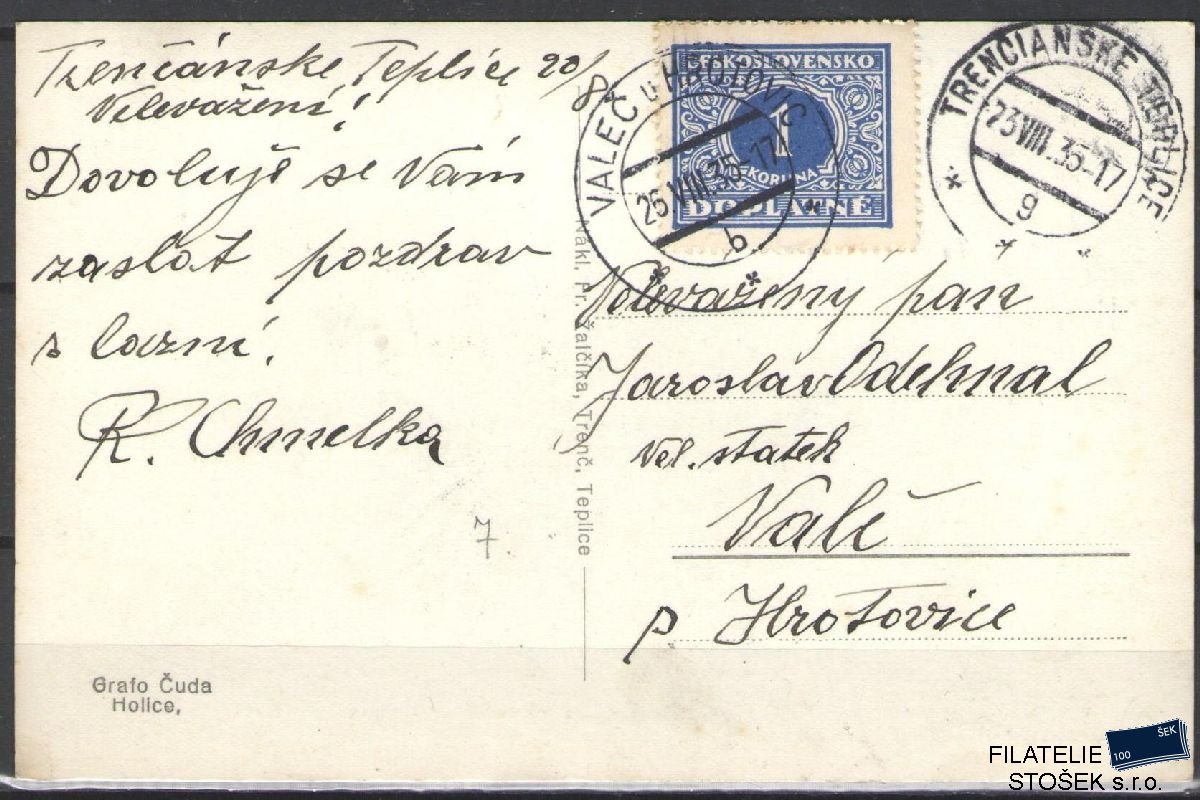 Trenčánske Teplice 20/8
Velevážení!
Dovoluji se Vám
zaslat pozdrav
z lázní.
R. Chmelka
7.
Grafo Čuda
Holice,
Nákl. Fr. Žalčíka, Trenč, Teplice
ČESKOSLOVENSKO
1
KORUNA
DOPLATNÉ
VALEČ u HROTOVIC
25.VIII.35-17
b
TRENČIANSKE TEPLICE
23.VIII.35-17
g
Velevážený pan
Jaroslav Odehnal
vel. statek
Valč
p Hrotovice
100
ŠEK
FILATELIE
STOŠEK s.r.o.